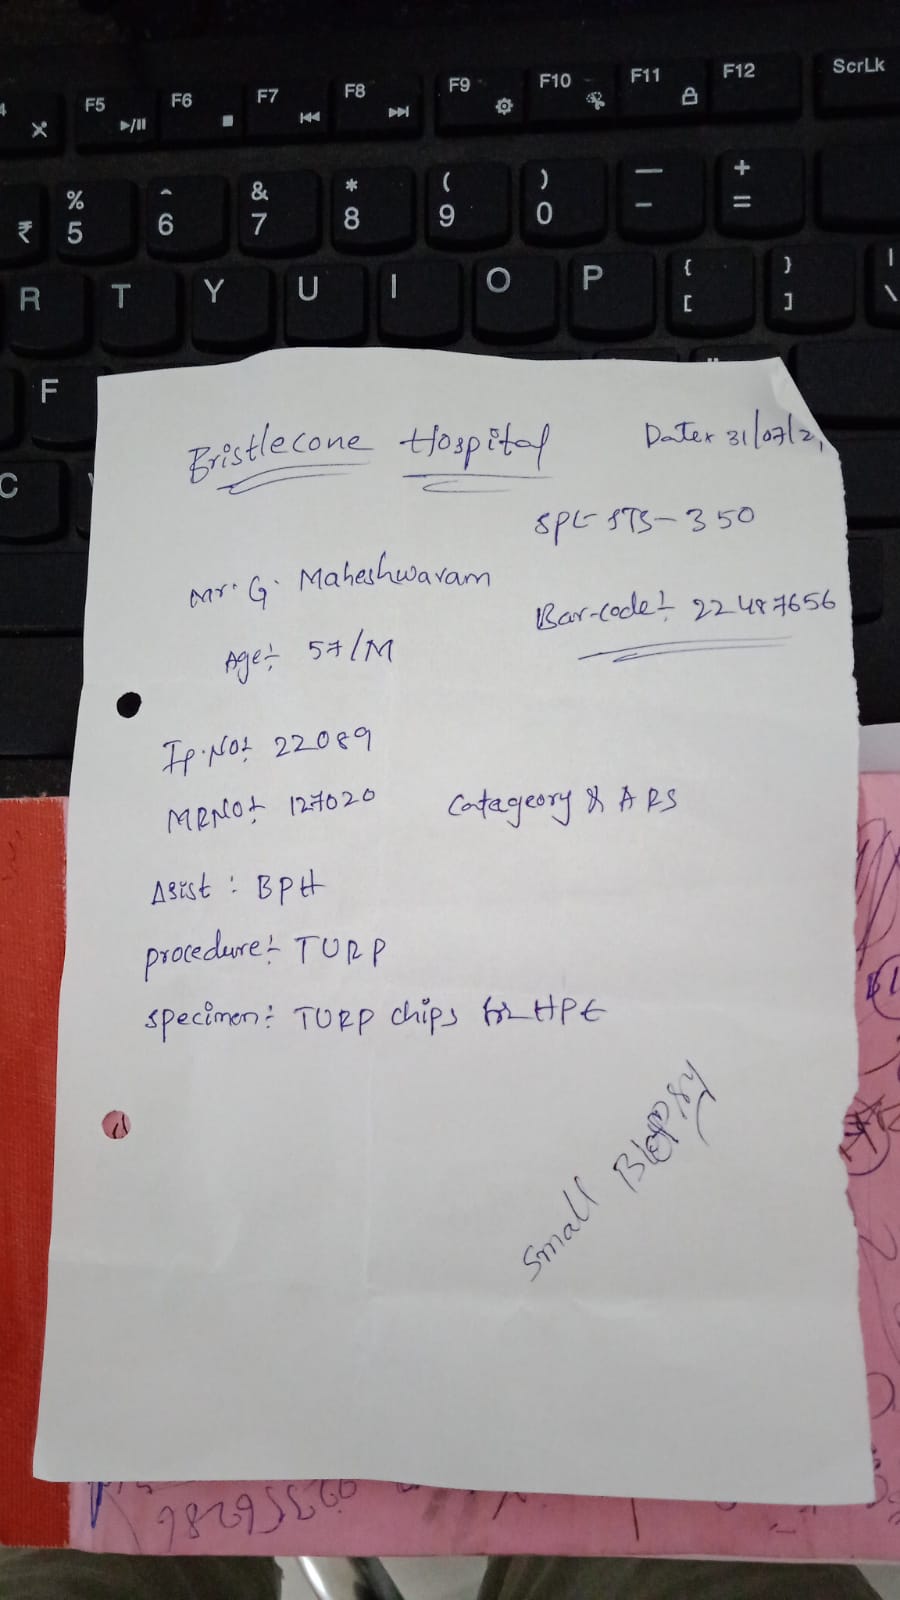 F5 F6 F7 F8 F9 F10 F11 F12 ScrLk
% ^ & * ( ) — +
₹ 5 6 7 8 9 0 - =
R T Y U I O P { [ } ] | \
F
C
Bristlecone Hospital Date: 31/07/2
SPE STS-350
Mr. G. Maheshwaram
Bar-code: 22487656
Age: 57/M
Ip.No: 22089
MRNO: 127020 Catageory
Procedure: TURP
BPH
specimen: TURP chips for HPE
Small Biopsy